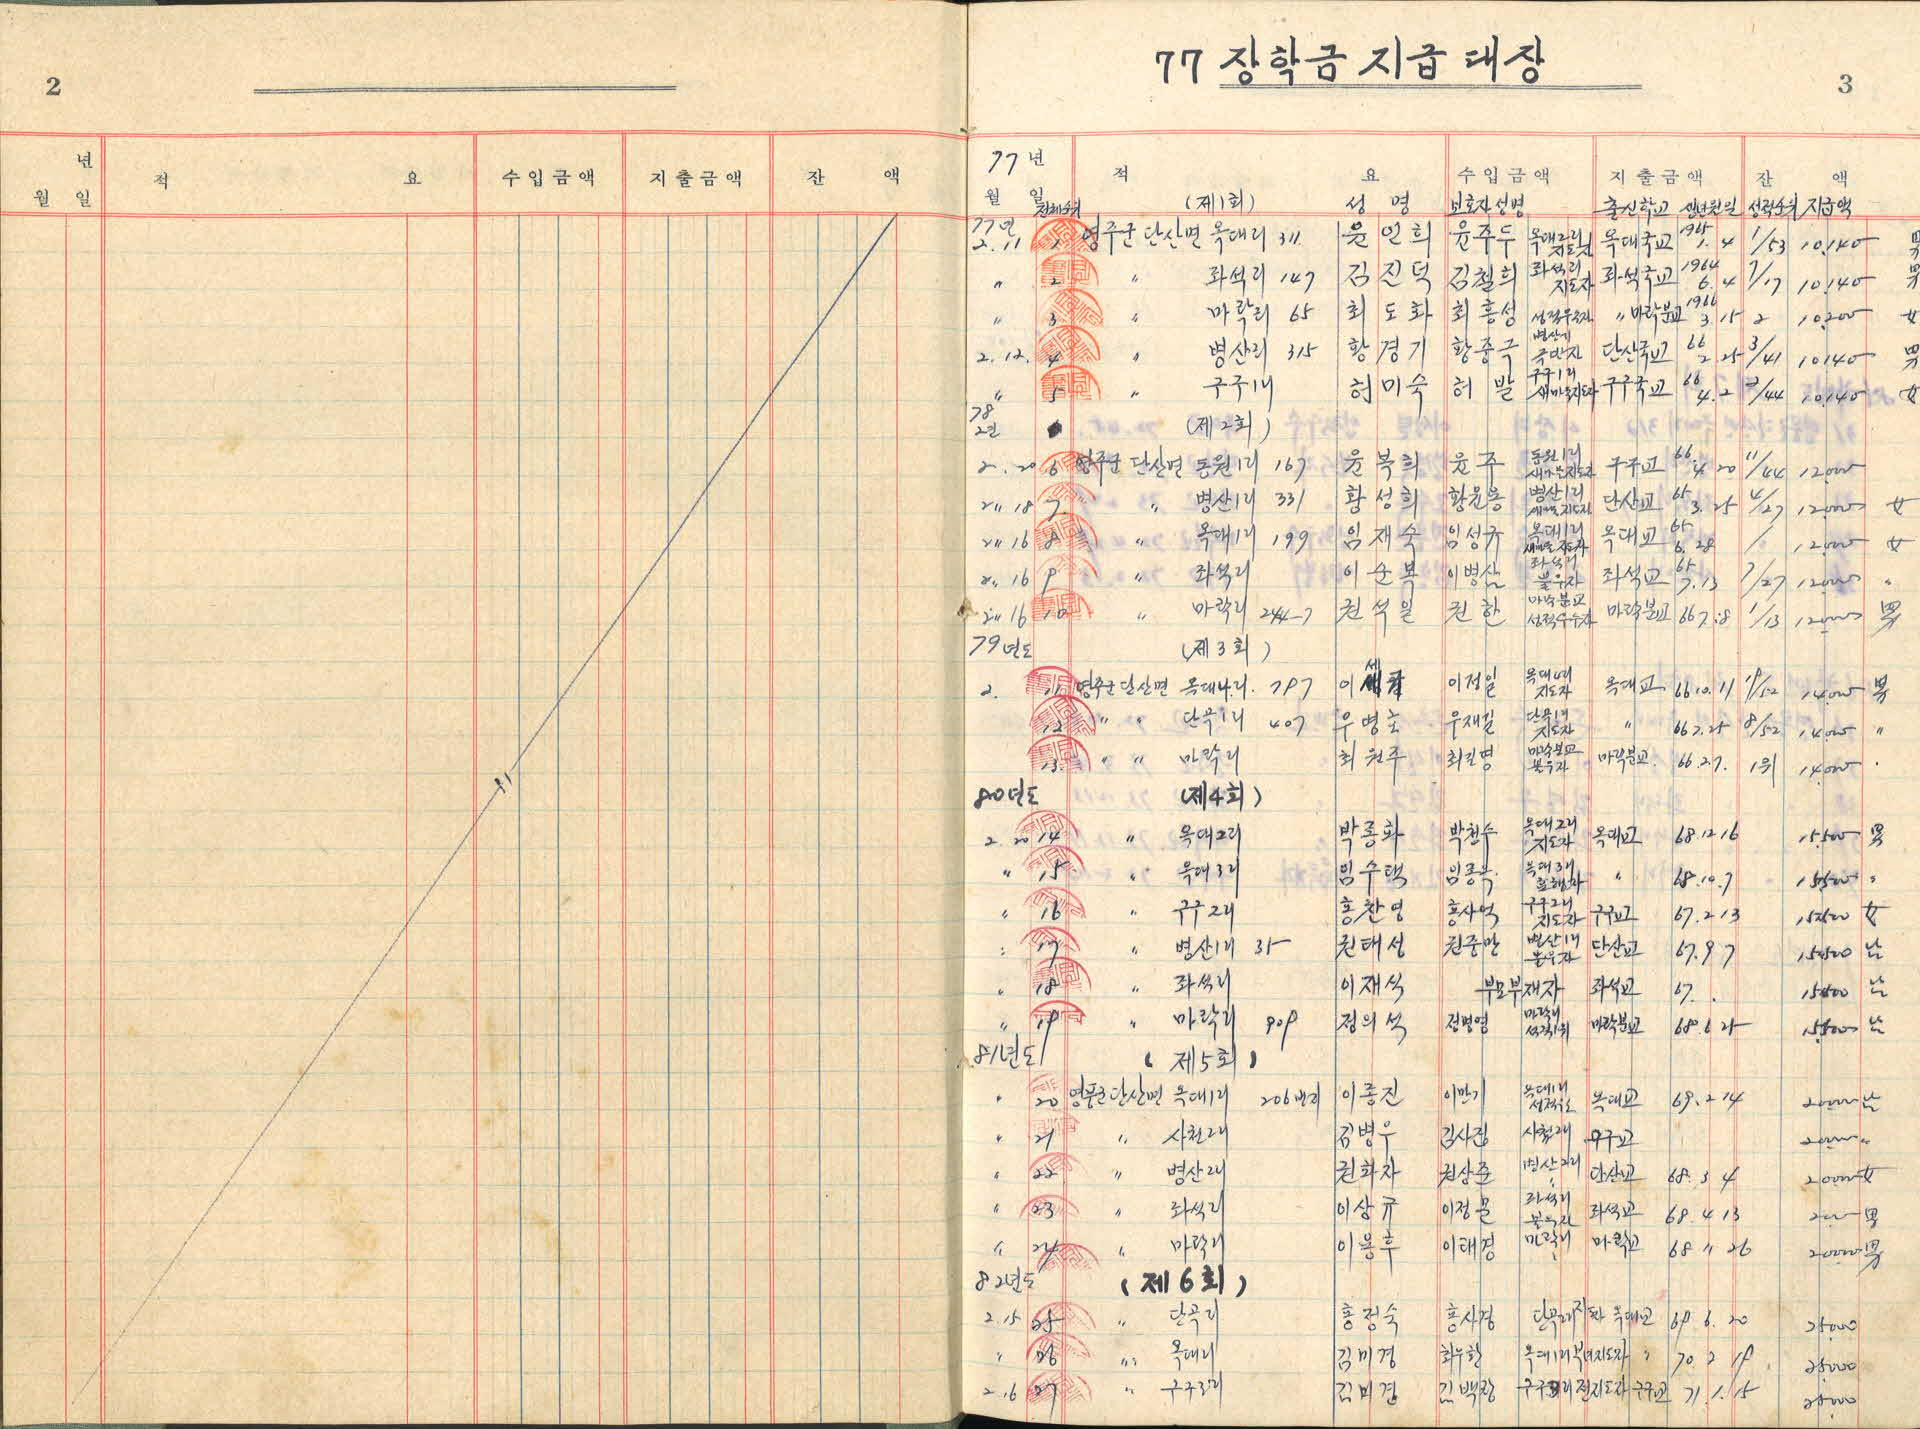 2
년
월 일 적 요 수입금액 지출금액 잔 액
77 장학금 지급 대장
3
77년
월 일 적 요 수입금액 지출금액 잔 액
(제1회) 성 명 보호자 성명 출신학교 생년월일 성적순위 지급액
77년
2.11 1 영주군 단산면 옥대리 311 윤인희 윤주두 옥대2리 지도자 옥대국교 1965 1.4 1/53 10.140 男
〃 2 〃 좌석리 147 김진덕 김철희 좌석리 지도자 좌석국교 1964 6.4 7/17 10.140 男
〃 3 〃 마락리 65 최도화 최흥성 성적우수자 〃 마락분교 1966 3.15 2 10.200 女
2.12. 4 〃 병산리 315 황경기 황중극 병산리 단산국교 66 2 25 3/41 10140 男
〃 5 〃 구구1리 허미숙 허발 구구1리 새마을지도자 구구국교 66 4.2 2/44 10.140 女
78
(제2회)
2. 20 6 영주군 단산면 동원1리 167 윤복희 윤주 동원1리 새마을지도자 구구교 66. 4.20 11/44 12000
2〃 18 7. 〃 병산1리 331 황성희 황윤용 병산1리 새마을지도자 단산교 65 3.25 4/27 12000 女
2〃 16 8 〃 옥대1리 199 임재숙 임성규 옥대1리 새마을지도자 옥대교 65 6.28 12000 女
2〃 16 9 〃 좌석리 이순복 이병삼 좌석리 불우자 좌석교 65 7.13 7/27 12000 〃
2〃 16 10 〃 마락리 244-7 권석일 권한 마락분교 성적우수자 마락분교 66 7.8 1/13 12000 男
79년도 (제3회)
2. 11 영주군 단산면 옥대4리. 797 이세 이정일 옥대4리 지도자 옥대교 66 10.11 9/52 14000 男
12 〃 〃 단곡1리 407 우병호 우재길 단곡1리 지도자 〃 66 7.25 8/52 14000 〃
13. 〃 〃 마락리 최원주 최길영 마락분교 불우자 마락분교. 66.2.7. 1위 14.000 〃
80년도 (제4회)
2.20 14 〃 옥대2리 박종화 박천수 옥대2리 지도자 옥대교 68.12.16 15.500 男
〃 15 〃 옥대3리 임수택 임종욱 옥대3리 〃 68.10.7 15500 〃
〃 16 〃 구구2리 홍찬영 홍사억 구구2리 지도자 구구교 67.2.13 15500 女
〃 17 〃 병산1리 35 권태성 권중만 병산1리 불우자 단산교 67.9.7 15500 남
〃 18 〃 좌석리 이재석 부모부재자 좌석교 67. . 15500 남
〃 19 〃 마락리 909 정의석 정명영 마락리 성적1위 마락분교 68.6.25 15500 남
81년도 (제5회)
〃 20 영풍군 단산면 옥대1리 206번지 이종진 이만기 옥대1리 옥대교 69.2.14 20000 남
〃 21 〃 사천2리 김병우 김사집 사천2리 구구교 20000 〃
〃 22 〃 병산2리 권화자 권상준 병산2리 단산교 68.3.4 20000 女
〃 23 〃 좌석리 이상규 이정물 좌석리 불우자 좌석교 68.4.13 男
〃 24 〃 마락리 이용후 이태경 마락리 마락교 68 11 26 20000 男
82년도 (제6회)
2.15 25 〃 단곡리 홍정숙 홍사경 단곡2리 지도자 옥대교 69.6.20 25000
〃 26 〃 옥대리 김미경 옥대1리 부녀지도자 〃 70.2.19. 25000
2.16 27 〃 구구3리 김미경 김백장 구구3리 전지도자 구구교 71.1.15 25000